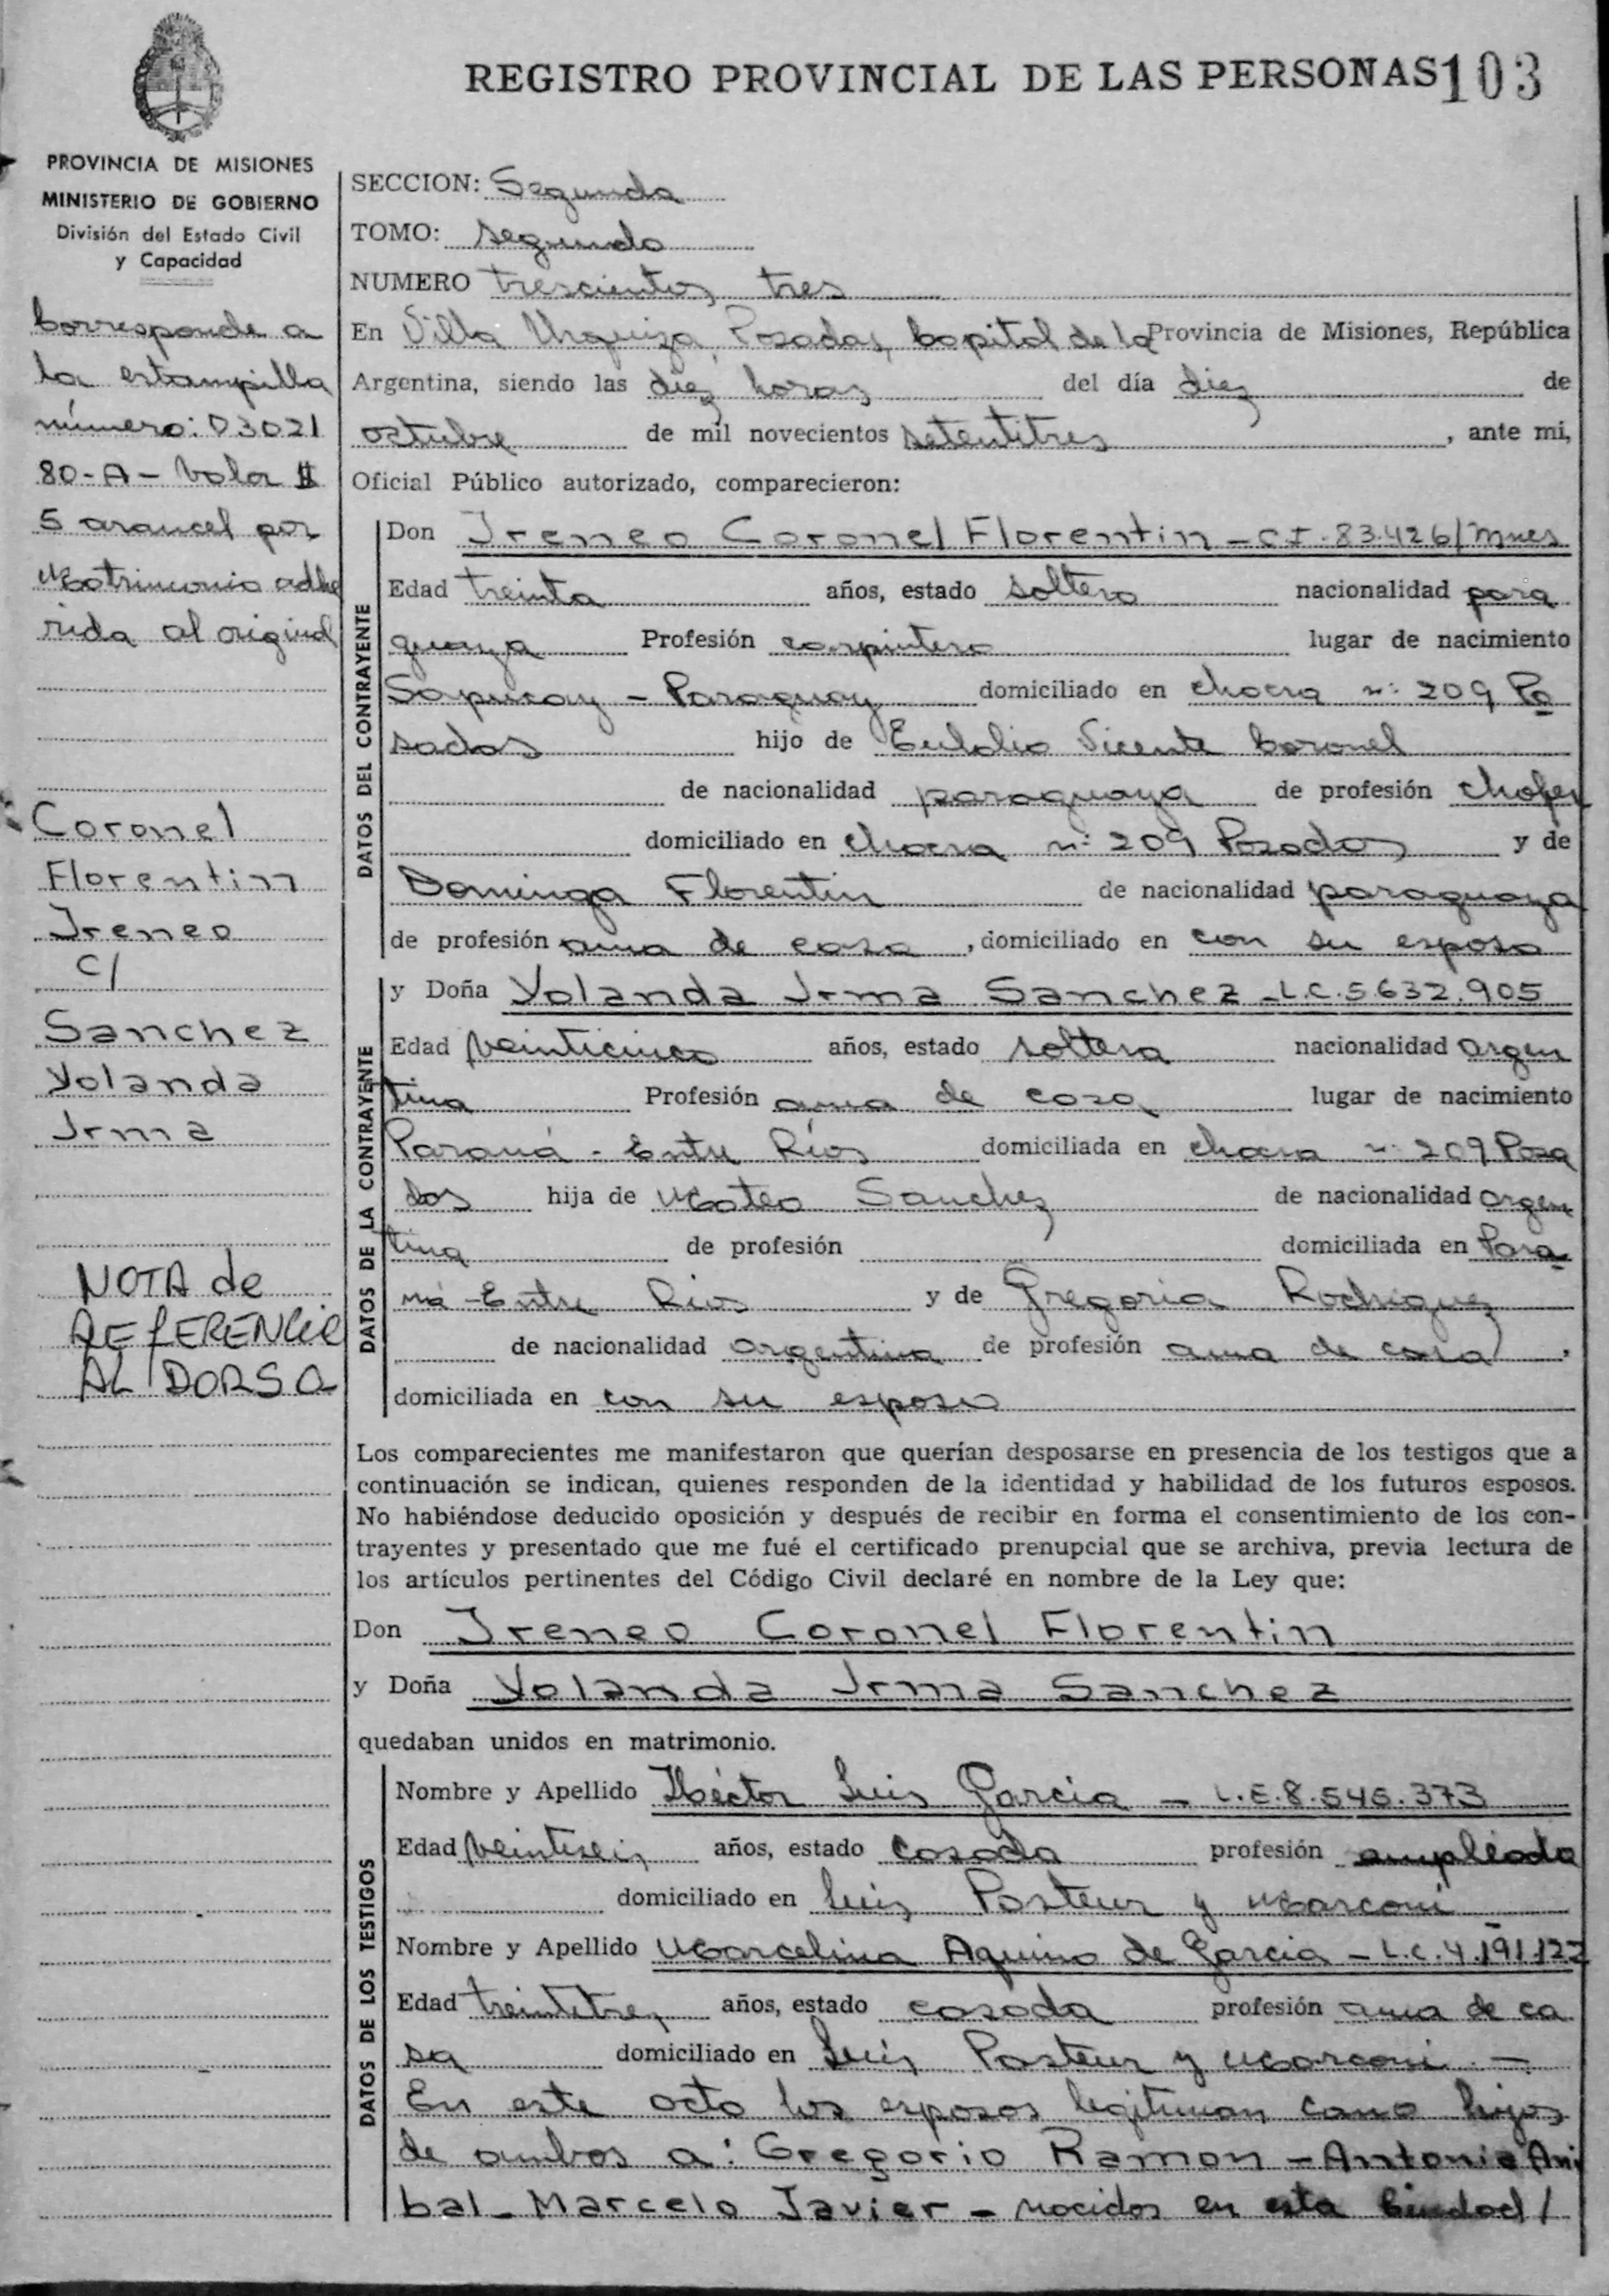 REGISTRO PROVINCIAL DE LAS PERSONAS 103
PROVINCIA DE MISIONES
MINISTERIO DE GOBIERNO
División del Estado Civil
y Capacidad
Corresponde a
la estampilla
número: 03021
80-A- Valor $
5 arancel por
Matrimonio adhe
rida al original
Coronel
Florentin
Ireneo
C/
Sanchez
Yolanda
Irma
NOTA de
REFERENCIA
AL DORSO
SECCION: Segunda
TOMO: segundo
NUMERO trescientos tres
En Villa Urquiza, Posadas, Capital de la Provincia de Misiones, República
Argentina, siendo las diez horas del día diez de
octubre de mil novecientos setentitres, ante mi,
Oficial Público autorizado, comparecieron:
DATOS DEL CONTRAYENTE
Don Ireneo Coronel Florentin - CI. 83.426/Mnes
Edad treinta años, estado soltero nacionalidad para
guaya Profesión carpintero lugar de nacimiento
Sapucay - Paraguay domiciliado en chacra n: 209 Po
sadas hijo de Eulalio Vicente Coronel
de nacionalidad paraguaya de profesión chofer
domiciliado en chacra n: 209 Posadas y de
Dominga Florentin de nacionalidad paraguaya
de profesión ama de casa, domiciliado en con su esposo
DATOS DE LA CONTRAYENTE
y Doña Yolanda Irma Sanchez - L.C. 5632.905
Edad veinticinco años, estado soltera nacionalidad argen
tina Profesión ama de casa lugar de nacimiento
Paraná - Entre Ríos domiciliada en chacra n: 209 Posa
das hija de Mateo Sanchez de nacionalidad argen
tina de profesión domiciliada en Para
ná - Entre Rios y de Gregoria Rodriguez
de nacionalidad argentina de profesión ama de casa,
domiciliada en con su esposo
Los comparecientes me manifestaron que querían desposarse en presencia de los testigos que a
continuación se indican, quienes responden de la identidad y habilidad de los futuros esposos.
No habiéndose deducido oposición y después de recibir en forma el consentimiento de los con-
trayentes y presentado que me fué el certificado prenupcial que se archiva, previa lectura de
los artículos pertinentes del Código Civil declaré en nombre de la Ley que:
Don Ireneo Coronel Florentin
y Doña Yolanda Irma Sanchez
quedaban unidos en matrimonio.
DATOS DE LOS TESTIGOS
Nombre y Apellido Héctor Luis Garcia - L.E. 8.545.373
Edad veintiseis años, estado casado profesión empleado
domiciliado en Luis Pasteur y Marconi
Nombre y Apellido Marcelina Aquino de Garcia - L.C. 4.191.122
Edad treintitres años, estado casada profesión ama de ca
sa domiciliado en Luis Pasteur y Marconi. -
En este acto los esposos legitiman como hijos
de ambos a: Gregorio Ramon - Antonio Ani
bal - Marcelo Javier - nacidos en esta Ciudad/